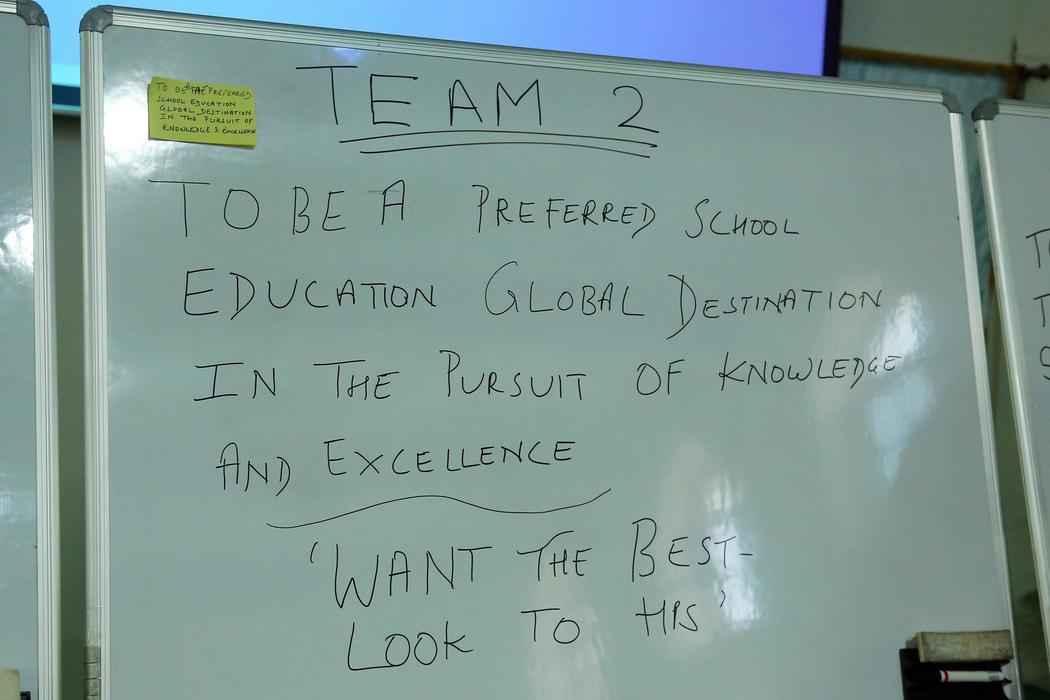 TEAM 2
TO BE A PREFERRED SCHOOL
EDUCATION GLOBAL DESTINATION
IN THE PURSUIT OF KNOWLEDGE
AND EXCELLENCE
'WANT THE BEST-
LOOK TO HPS'
TO BE THE PREFERRED
SCHOOL EDUCATION
GLOBAL DESTINATION
IN THE PURSUIT OF
KNOWLEDGE & EXCELLENCE